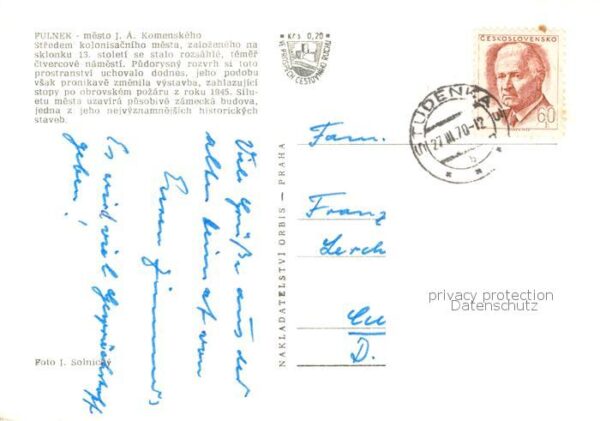 FULNEK - město J. A. Komenského
Středem kolonisačního města, založeného na
sklonku 13. století se stalo rozsáhlé, téměř
čtvercové náměstí. Půdorysný rozvrh si toto
prostranství uchovalo dodnes, jeho podobu
však pronikavě změnila výstavba, zahlazující
stopy po obrovském požáru z roku 1945. Silu-
etu města uzavírá působivě zámecká budova,
jedna z jeho nejvýznamnějších historických
staveb.
Foto J. Solnický
Kčs 0,20
VE PROSPĚCH CESTOVNÍHO RUCHU
NAKLADATELSTVÍ ORBIS — PRAHA
ČESKOSLOVENSKO
60
STUDÉNKA
27.III.70-12
b
Viele Grüße aus der
alten Heimat von
Euren Zimmermann's
Es wird viel Gesprächstoff
geben!
Fam.
Franz
Lerch
D.
privacy protection
Datenschutz